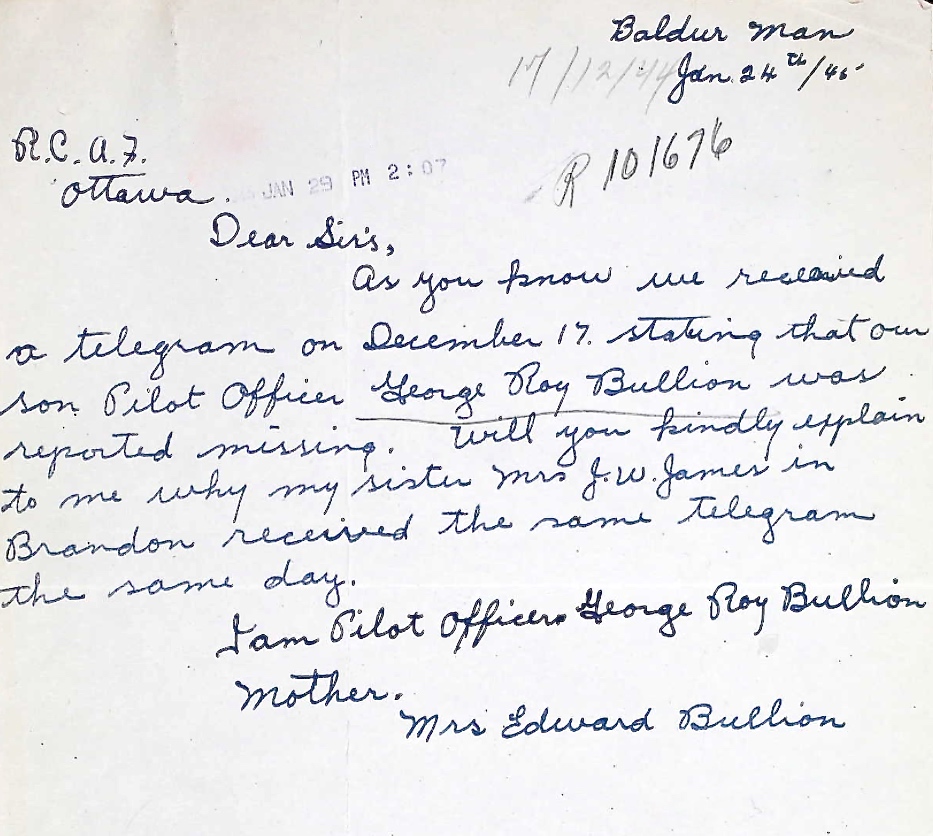 Baldur Man
17/12/44 Jan. 24th/45
R.C.A.F.
R 101676
Ottawa.
JAN 29 PM 2:07
Dear Sir's,
As you know we received
a telegram on December 17. stating that our
son Pilot Officer George Roy Bullion was
reported missing. Will you kindly explain
to me why my sister Mrs J.W. James in
Brandon received the same telegram
the same day.
I am Pilot Officers George Roy Bullion
Mother.
Mrs Edward Bullion